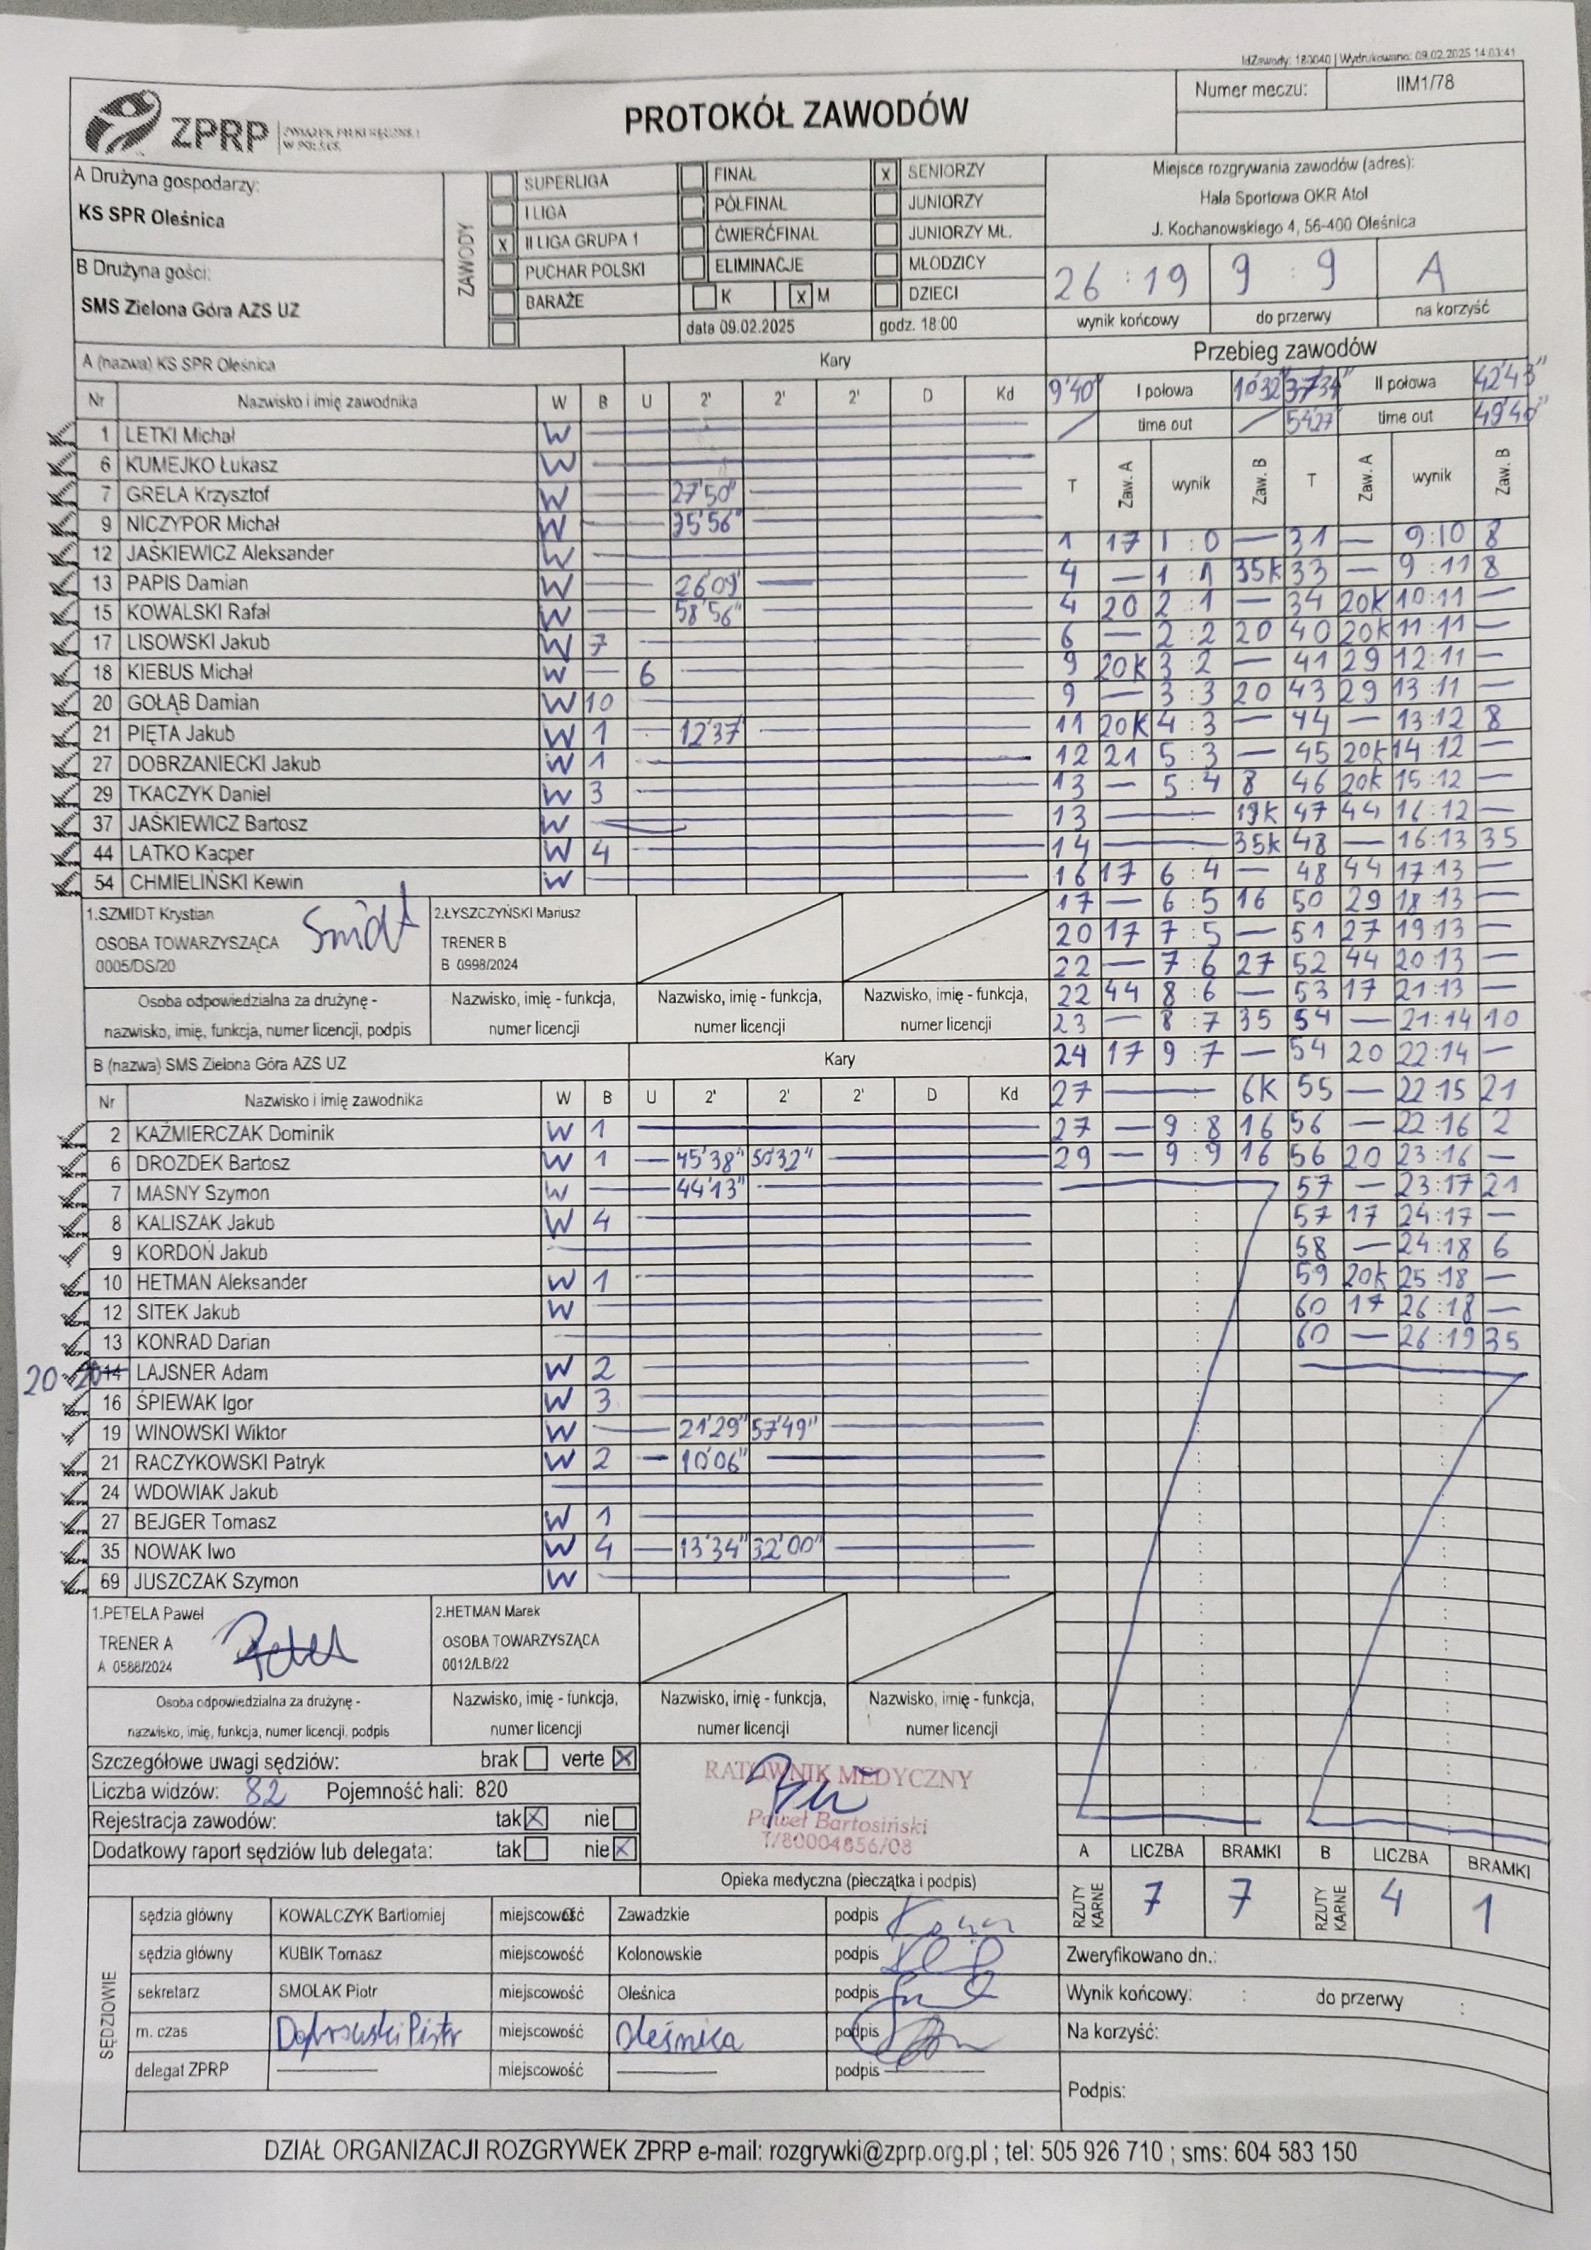 IdZawody: 180040 | Wydrukowano: 09.02.2025 14:03:41
ZPRP ZWIĄZEK PIŁKI RĘCZNEJ W POLSCE
PROTOKÓŁ ZAWODÓW
Numer meczu: IIM1/78
A Drużyna gospodarzy:
KS SPR Oleśnica
B Drużyna gości:
SMS Zielona Góra AZS UZ
ZAWODY
SUPERLIGA
I LIGA
x II LIGA GRUPA 1
PUCHAR POLSKI
BARAŻE
FINAŁ
PÓŁFINAŁ
ĆWIERĆFINAŁ
ELIMINACJE
K x M
data 09.02.2025
x SENIORZY
JUNIORZY
JUNIORZY MŁ.
MŁODZICY
DZIECI
godz. 18:00
Miejsce rozgrywania zawodów (adres):
Hala Sportowa OKR Atol
J. Kochanowskiego 4, 56-400 Oleśnica
26 : 19 9 : 9 A
wynik końcowy do przerwy na korzyść
A (nazwa) KS SPR Oleśnica Kary
Nr Nazwisko i imię zawodnika W B U 2' 2' 2' D Kd
1 LETKI Michał W
6 KUMEJKO Łukasz W
7 GRELA Krzysztof W 27'50"
9 NICZYPOR Michał W 35'56"
12 JAŚKIEWICZ Aleksander W
13 PAPIS Damian W 26'09"
15 KOWALSKI Rafał W 58'56"
17 LISOWSKI Jakub W 7
18 KIEBUS Michał W 6
20 GOŁĄB Damian W 10
21 PIĘTA Jakub W 1 12'37"
27 DOBRZANIECKI Jakub W 1
29 TKACZYK Daniel W 3
37 JAŚKIEWICZ Bartosz W
44 LATKO Kacper W 4
54 CHMIELIŃSKI Kewin W
1.SZMIDT Krystian
OSOBA TOWARZYSZĄCA
0005/DS/20
2.ŁYSZCZYŃSKI Mariusz
TRENER B
B 0998/2024
Osoba odpowiedzialna za drużynę -
nazwisko, imię, funkcja, numer licencji, podpis
Nazwisko, imię - funkcja,
numer licencji
Nazwisko, imię - funkcja,
numer licencji
Nazwisko, imię - funkcja,
numer licencji
B (nazwa) SMS Zielona Góra AZS UZ Kary
Nr Nazwisko i imię zawodnika W B U 2' 2' 2' D Kd
2 KAŹMIERCZAK Dominik W 1
6 DROZDEK Bartosz W 1 45'38" 50'32"
7 MASNY Szymon W 44'13"
8 KALISZAK Jakub W 4
9 KORDOŃ Jakub
10 HETMAN Aleksander W 1
12 SITEK Jakub W
13 KONRAD Darian
20 20 14 LAJSNER Adam W 2
16 ŚPIEWAK Igor W 3
19 WINOWSKI Wiktor W 21'29" 57'49"
21 RACZYKOWSKI Patryk W 2 10'06"
24 WDOWIAK Jakub
27 BEJGER Tomasz W 1
35 NOWAK Iwo W 4 13'34" 32'00"
69 JUSZCZAK Szymon W
1.PETELA Paweł
TRENER A
A 0588/2024
2.HETMAN Marek
OSOBA TOWARZYSZĄCA
0012/LB/22
Osoba odpowiedzialna za drużynę -
nazwisko, imię, funkcja, numer licencji, podpis
Nazwisko, imię - funkcja,
numer licencji
Nazwisko, imię - funkcja,
numer licencji
Nazwisko, imię - funkcja,
numer licencji
Przebieg zawodów
9'40" I połowa 10'32" 37'34" II połowa 42'43"
time out 54'27" time out 49'40"
T Zaw. A wynik Zaw. B T Zaw. A wynik Zaw. B
1 17 1 : 0 — 31 — 9:10 8
4 — 1 : 1 35K 33 — 9:11 8
4 20 2 : 1 — 34 20K 10:11 —
6 — 2 : 2 20 40 20K 11:11 —
9 20K 3 : 2 — 41 29 12:11 —
9 — 3 : 3 20 43 29 13:11 —
11 20K 4 : 3 — 44 — 13:12 8
12 21 5 : 3 — 45 20K 14:12 —
13 — 5 : 4 8 46 20K 15:12 —
13 — 19K 47 44 16:12 —
14 — 35K 48 — 16:13 35
16 17 6 : 4 — 48 44 17:13 —
17 — 6 : 5 16 50 29 18:13 —
20 17 7 : 5 — 51 27 19:13 —
22 — 7 : 6 27 52 44 20:13 —
22 44 8 : 6 — 53 17 21:13 —
23 — 8 : 7 35 54 — 21:14 10
24 17 9 : 7 — 54 20 22:14 —
27 — 6K 55 — 22:15 21
27 — 9 : 8 16 56 — 22:16 2
29 — 9 : 9 16 56 20 23:16 —
57 — 23:17 21
57 17 24:17 —
58 — 24:18 6
59 20K 25:18 —
60 17 26:18 —
60 — 26:19 35
Szczegółowe uwagi sędziów: brak verte x
Liczba widzów: 82 Pojemność hali: 820
Rejestracja zawodów: tak x nie
Dodatkowy raport sędziów lub delegata: tak nie x
RATOWNIK MEDYCZNY
Paweł Bartosiński
T/80004856/08
Opieka medyczna (pieczątka i podpis)
A LICZBA BRAMKI B LICZBA BRAMKI
RZUTY KARNE 7 7 RZUTY KARNE 4 1
SĘDZIOWIE
sędzia główny KOWALCZYK Bartłomiej miejscowość Zawadzkie podpis
sędzia główny KUBIK Tomasz miejscowość Kolonowskie podpis
sekretarz SMOLAK Piotr miejscowość Oleśnica podpis
m. czas Dąbrowski Piotr miejscowość Oleśnica podpis
delegat ZPRP miejscowość podpis
Zweryfikowano dn.:
Wynik końcowy: : do przerwy :
Na korzyść:
Podpis:
DZIAŁ ORGANIZACJI ROZGRYWEK ZPRP e-mail: rozgrywki@zprp.org.pl ; tel: 505 926 710 ; sms: 604 583 150